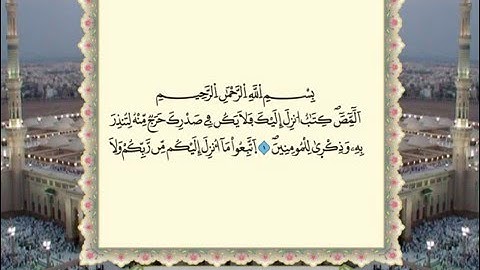 بِسْمِ اِ۬للَّهِ اِ۬لرَّحْمَٰنِ اِ۬لرَّحِيمِ
أَلَٓمِّٓصَٓۖ كِتَٰبٌ ا۟نزِلَ إِلَيْكَ فَلَا يَكُن فِے صَدْرِكَ حَرَجٞ مِّنْهُ لِتُنذِرَ
بِهِۦ وَذِكْر۪يٰ لِلْمُومِنِينَۖ ١ اَ۪تَّبِعُوا۟ مَآ أُنزِلَ إِلَيْكُم مِّن رَّبِّكُمْ وَلَا